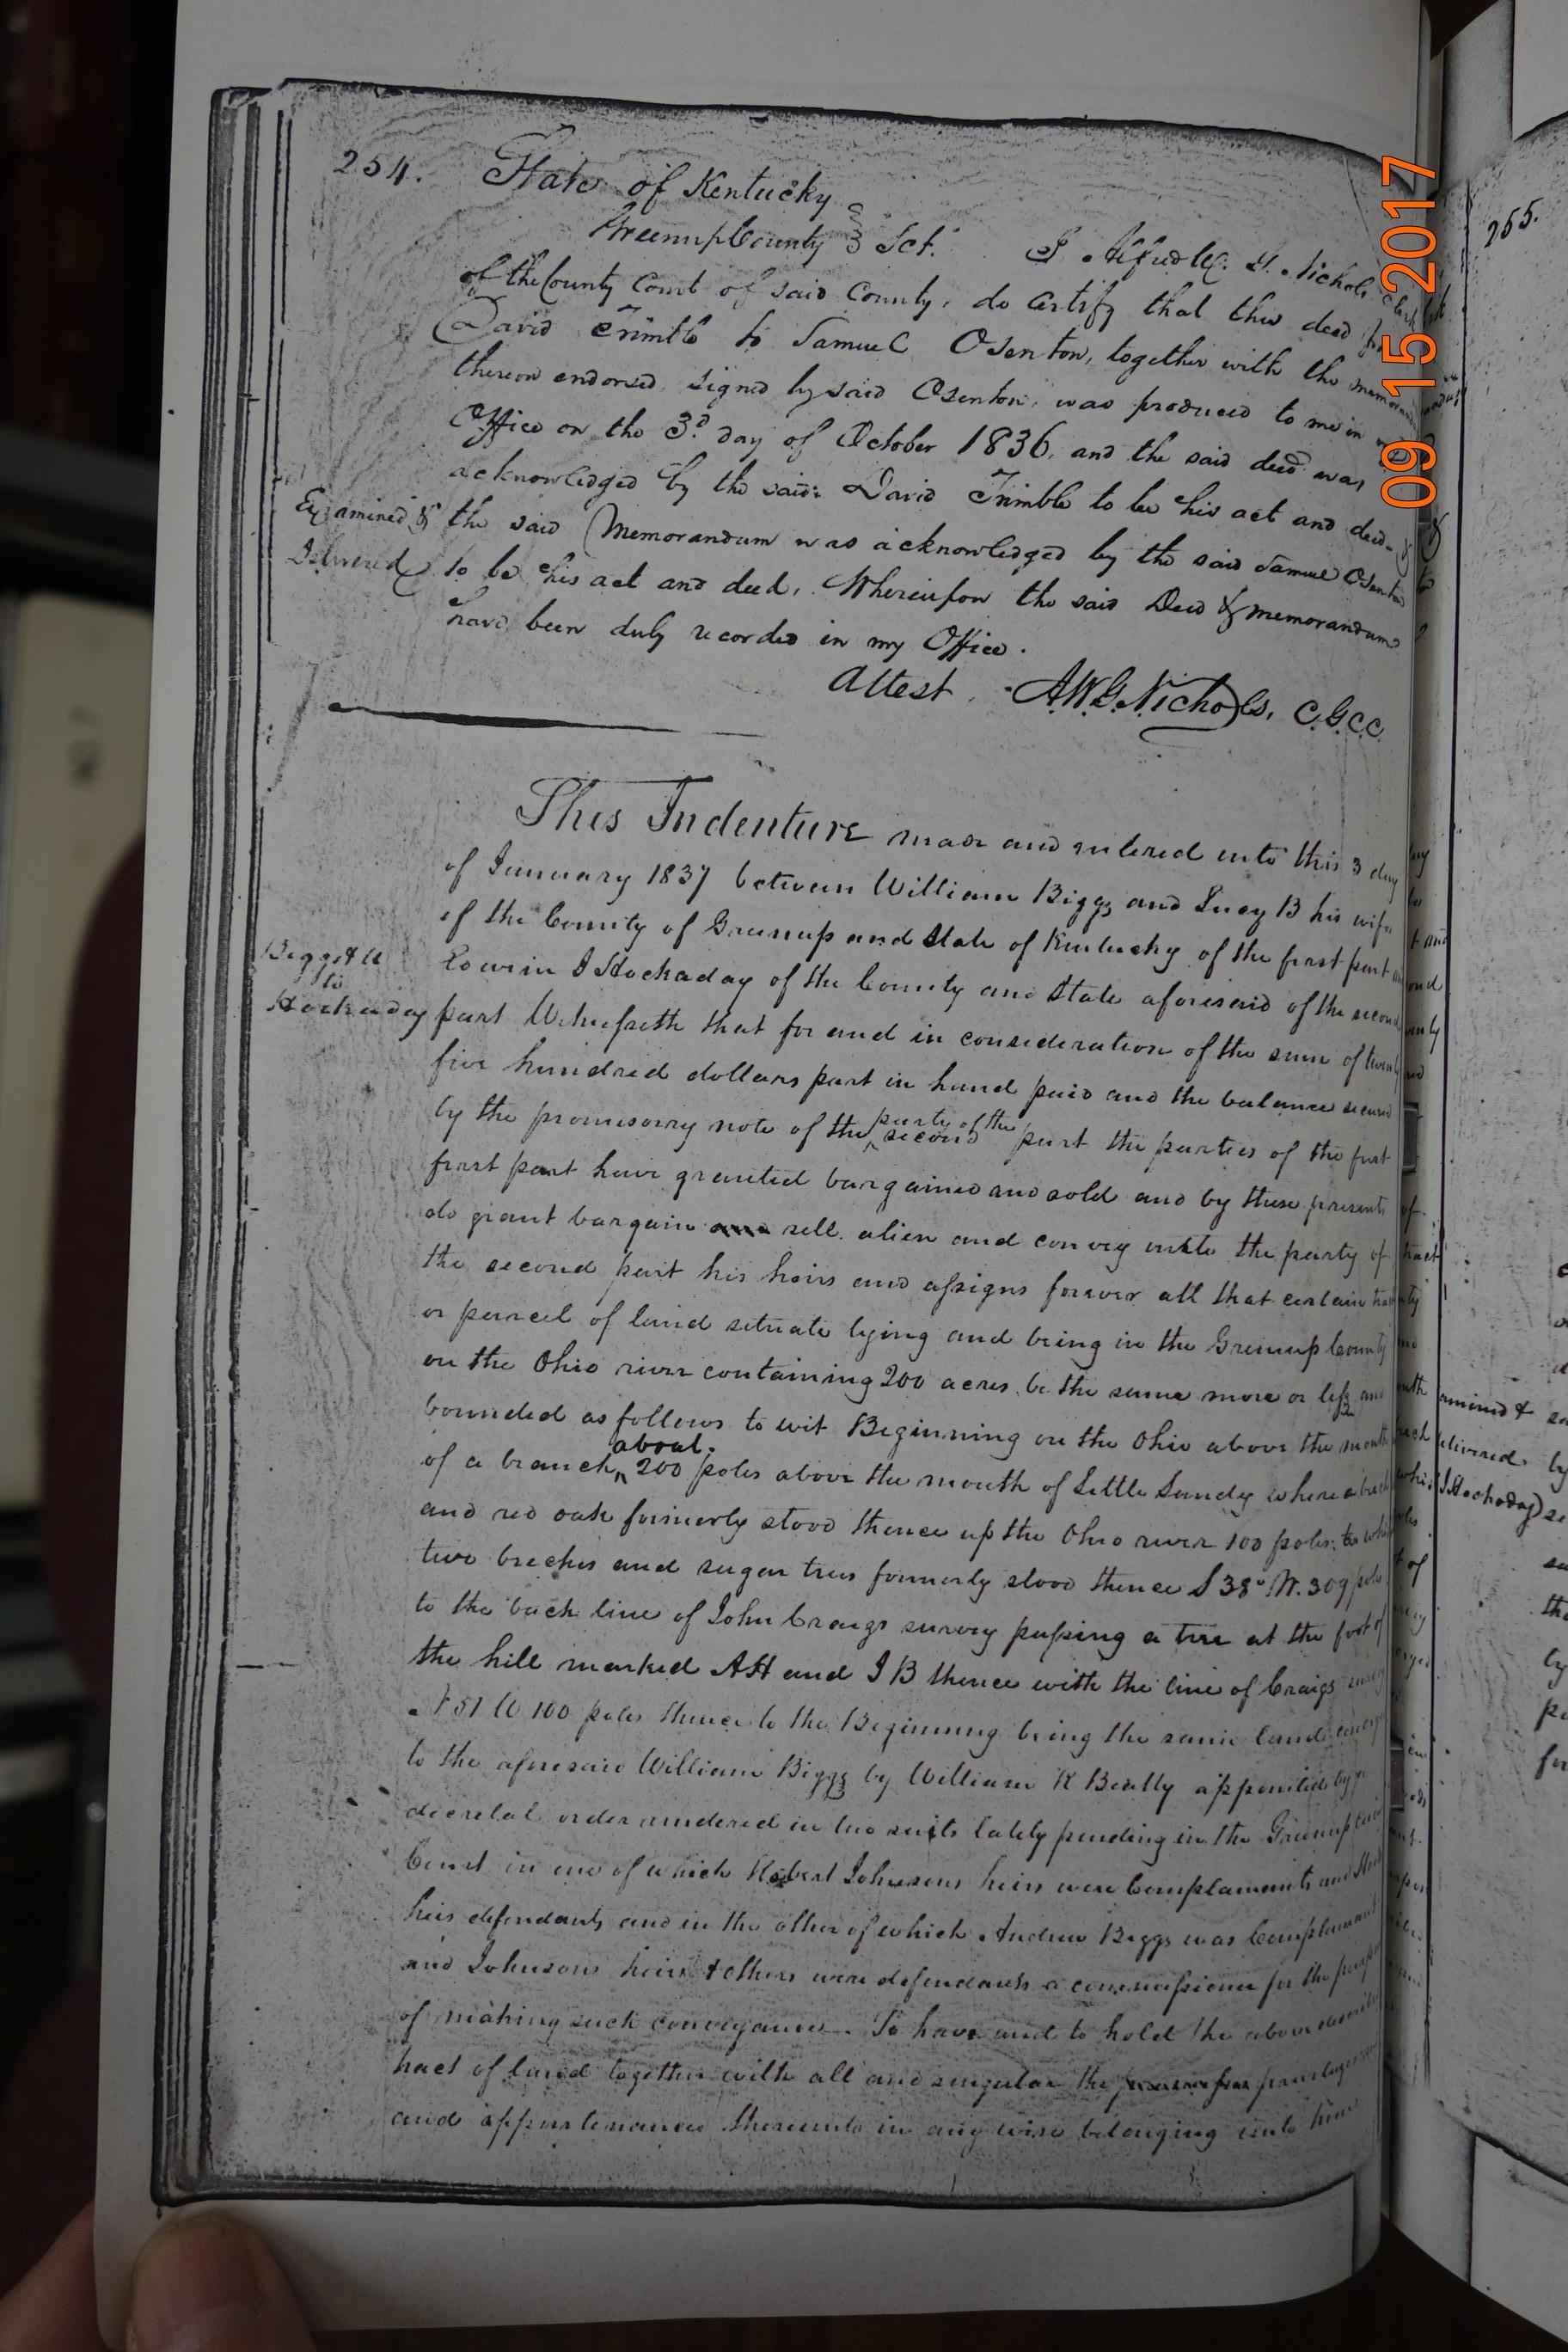 254.
State of Kentucky
Greenup County Sct. I Alfred W. G. Nichols clerk
of the County Court of said County, do certify that this deed
David Trimble to Samuel Osenton, together with the
thereon endorsed signed by said Osenton, was produced to me in
Office on the 3d day of October 1836, and the said deed was
acknowledged by the said David Trimble to be his act and deed &
Examined & the said Memorandum was acknowledged by the said Samuel Osenton
Delivered to be his act and deed, Whereupon the said Deed & memorandum
have been duly recorded in my Office.
Attest. A.W.G. Nichols, C.G.C.C.
This Indenture made and entered into this 3 day
of January 1837 between William Biggs and Lucy B his wife
of the County of Greenup and State of Kentucky of the first part
Biggs &
to
Hockaday
I Hockaday of the County and State aforesaid of the second
part Witnesseth that for and in consideration of the sum of twenty
five hundred dollars part in hand paid and the balance secured
by the promissory note of the party of the second part the parties of the first
first part have granted bargained and sold and by these presents
do grant bargain sell alien and convey unto the party of
the second part his heirs and assigns forever all that certain
or parcel of land situate lying and being in the Greenup County
on the Ohio river containing 200 acres be the same more or less
bounded as follows to wit Beginning on the Ohio above the mouth
of a branch about 200 poles above the mouth of Little Sandy where a
and red oak formerly stood thence up the Ohio river 100 poles to
two beeches and sugar trees formerly stood thence S 38° W. 309 poles
to the back line of John Craigs survey passing a tree at the foot of
the hill marked AH and I B thence with the line of Craigs
N 51 W 100 poles thence to the Beginning being the same land
to the aforesaid William Biggs by William R Beatty appointed by a
decretal order rendered in two suits lately pending in the Greenup
Court in one of which Robert Johnsons heirs were Complainants and
heirs defendants and in the other of which Andrew Biggs was Complainant
and Johnsons heirs & others were defendants a commissioner for the
of making such conveyance. To have and to hold the above
tract of land together with all and singular the
and appurtenances thereunto in any wise belonging unto him
255.
delivered
Hockaday
09 15 2017